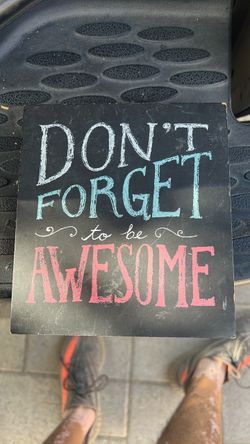 DON'T
FORGET
to be
AWESOME